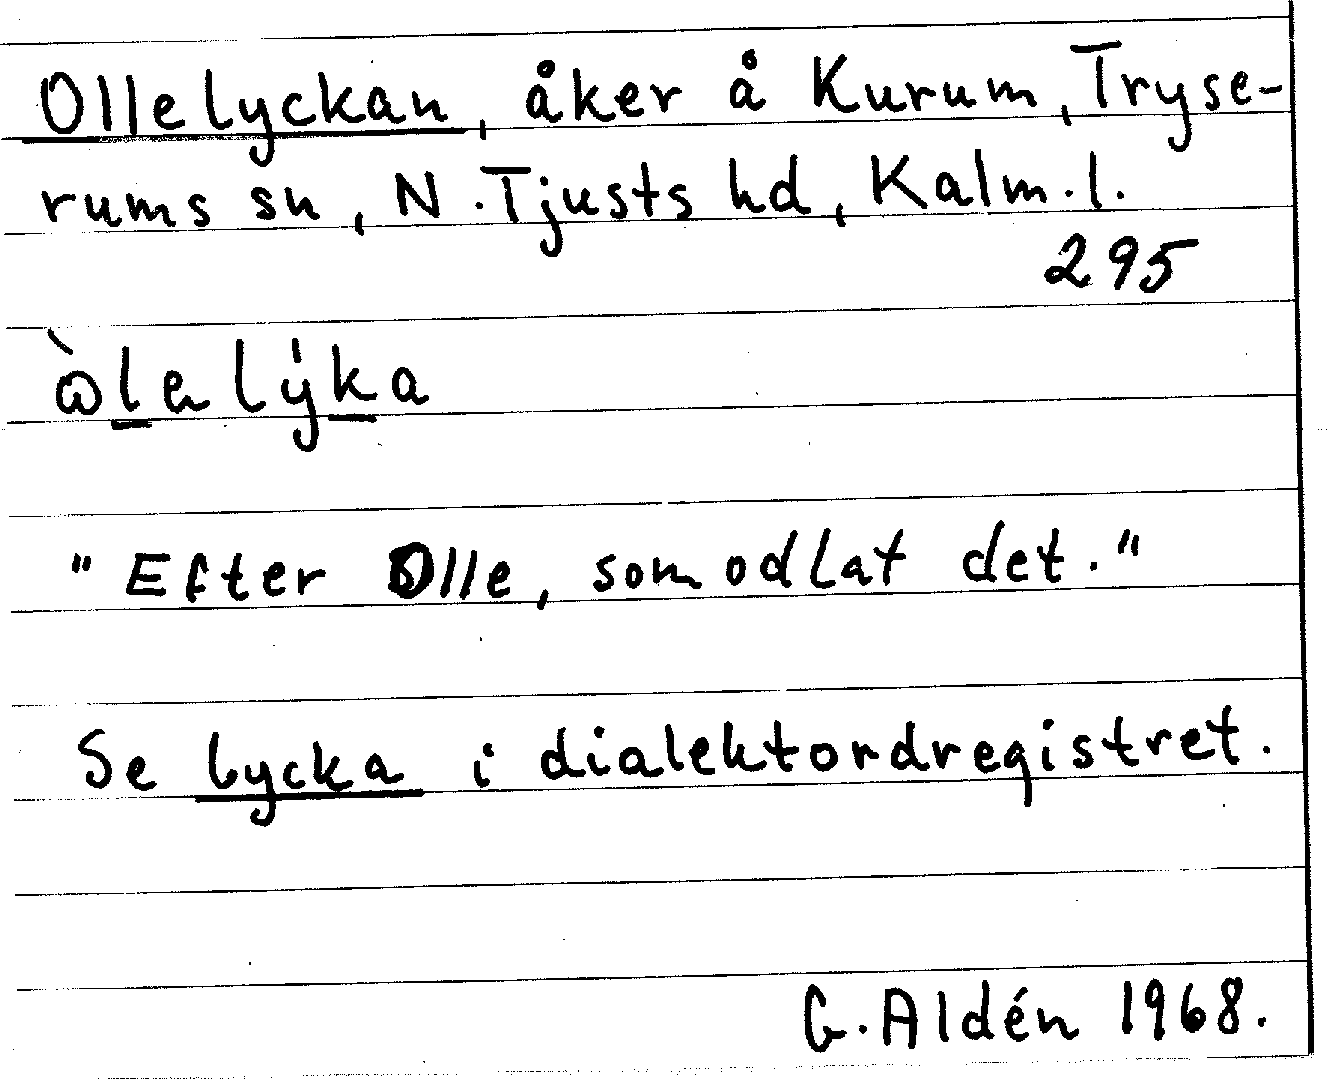 Ollelyckan, åker å Kurum, Tryse-
rums sn, N. Tjusts hd, Kalm. l.
295
"Efter Olle, som odlat det."
Se lycka i dialektordregistret.
G. Aldén 1968.